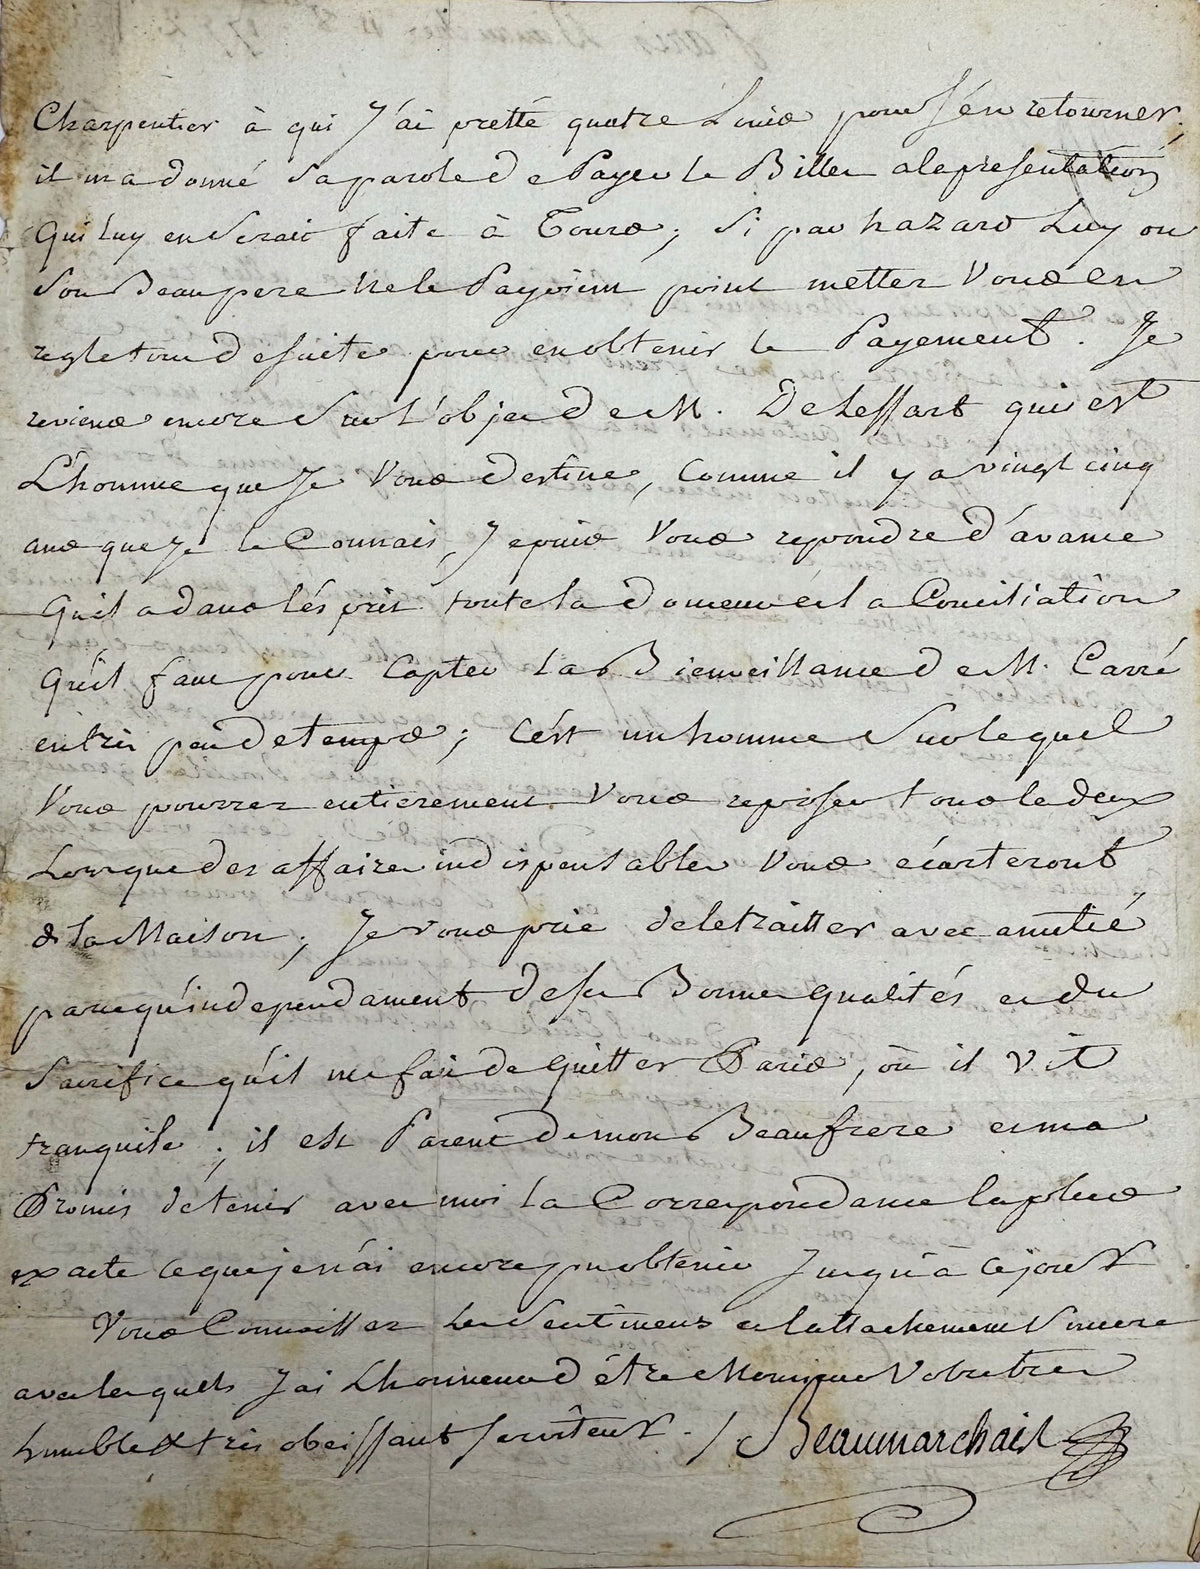 Charpentier à qui J'ai pretté quatre Louis pour s'en retourner;
il m'a donné sa parole de Payer le Billet a la présentation
Qui luy en serait faite à Tours; Si par hazard Luy ou
Son Beaupere ne le Payoient point mettez Vous en
regle tout de suite pour en obtenir le Payement. Je
reviens encore sur L'objet de M. De Lessart qui est
L'homme que Je Vous destine, Comme il y a vingt cinq
ans que Je le Connais, Je puis Vous repondre d'avance
Qu'il a dans l'ésprit toute la douceur et la Conciliation
Qu'il faut pour Capter La Bienveillance de M. Carré
en très peu de temps; C'est un homme sur lequel
Vous pourrez entierement Vous reposer tous le deux
Lorsque des affaires indispensables Vous écarteront
de la Maison; Je vous prie de le traitter avec amitié
parcequ'independament de ses Bonnes Qualités et du
Sacrifice qu'il me fait de Quitter Paris, où il vit
tranquile; il est Parent de mon Beaufrere et m'a
Promis de tenir avec moi La Correspondance la plus
exacte ce que je n'ai encore pu obtenir Jusqu'à ce jour
Vous Connoissez Les Sentimens et l'attachement Sincere
avec lesquels J'ai L'honneur d'être Monsieur Votre tres
humble & très obeissant serviteur. /. Beaumarchais